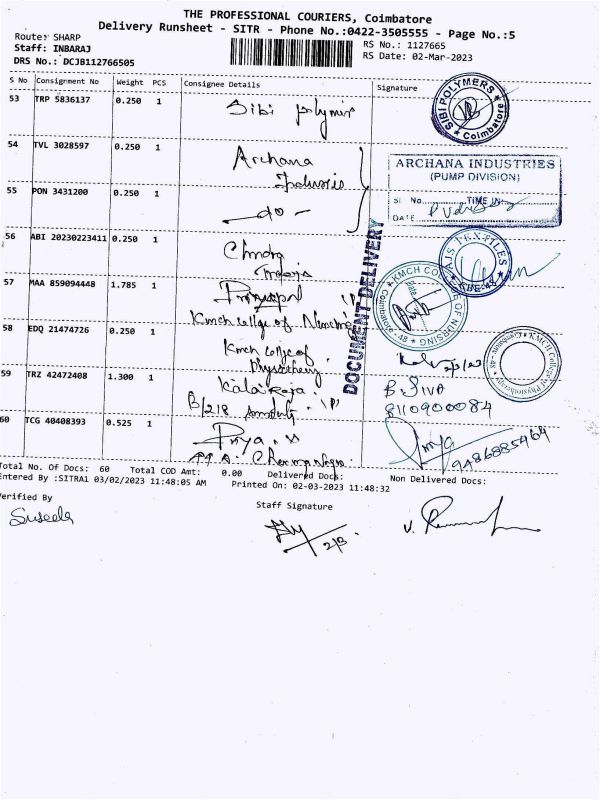 THE PROFESSIONAL COURIERS, Coimbatore
Delivery Runsheet - SITR - Phone No.:0422-3505555 - Page No.:5
Route: SHARP
Staff: INBARAJ
DRS No.: DCJB112766505
RS No.: 1127665
RS Date: 02-Mar-2023
S No Consignment No Weight PCS Consignee Details Signature
53 TRP 5836137 0.250 1 Sibi polymir
SIBI POLYMERS ★ Coimbatore ★
54 TVL 3028597 0.250 1 Archana
ARCHANA INDUSTRIES
(PUMP DIVISION)
Sl No. TIME IN:
DATE
55 PON 3431200 0.250 1 - do -
56 ABI 20230223411 0.250 1
AJS TEXTILES
CBE-48
57 MAA 859094448 1.785 1 Principal
Kmch College of
KMCH COLLEGE OF NURSING
Coimbatore - 48
Date
58 EDQ 21474726 0.250 1 Kmch College of
KMCH College of Physiotherapy
Coimbatore - 48
59 TRZ 42472408 1.300 1 Kalairaja
B/218
B. SIVA
8110900084
60 TCG 40408393 0.525 1 Priya
Priya
9486885464
DOCUMENT DELIVERY
Total No. Of Docs: 60 Total COD Amt: 0.00 Delivered Docs: Non Delivered Docs:
Entered By :SITRA1 03/02/2023 11:48:05 AM Printed On: 02-03-2023 11:48:32
Verified By
Staff Signature
Suseela
2/3